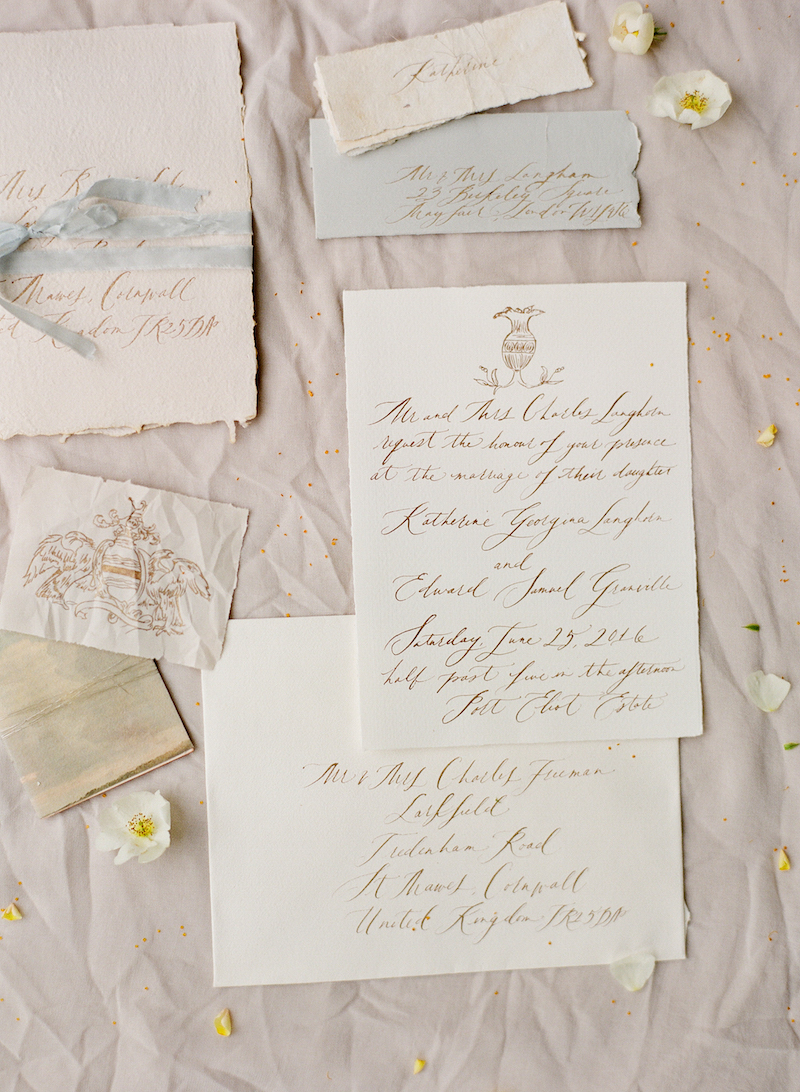 Katherine
Mr & Mrs Langham
23 Berkeley Square
Mayfair London
Mrs
St Mawes, Cornwall
United Kingdom TR25DA
Mr and Mrs Charles Langhorn
request the honour of your presence
at the marriage of their daughter
Katherine Georgina Langhorn
and
Edward Samuel Granville
Saturday, June 25, 2016
half past five in the afternoon
Port Eliot Estate
Mr & Mrs Charles Freeman
Larkfield
Tredenham Road
St Mawes, Cornwall
United Kingdom TR25DA